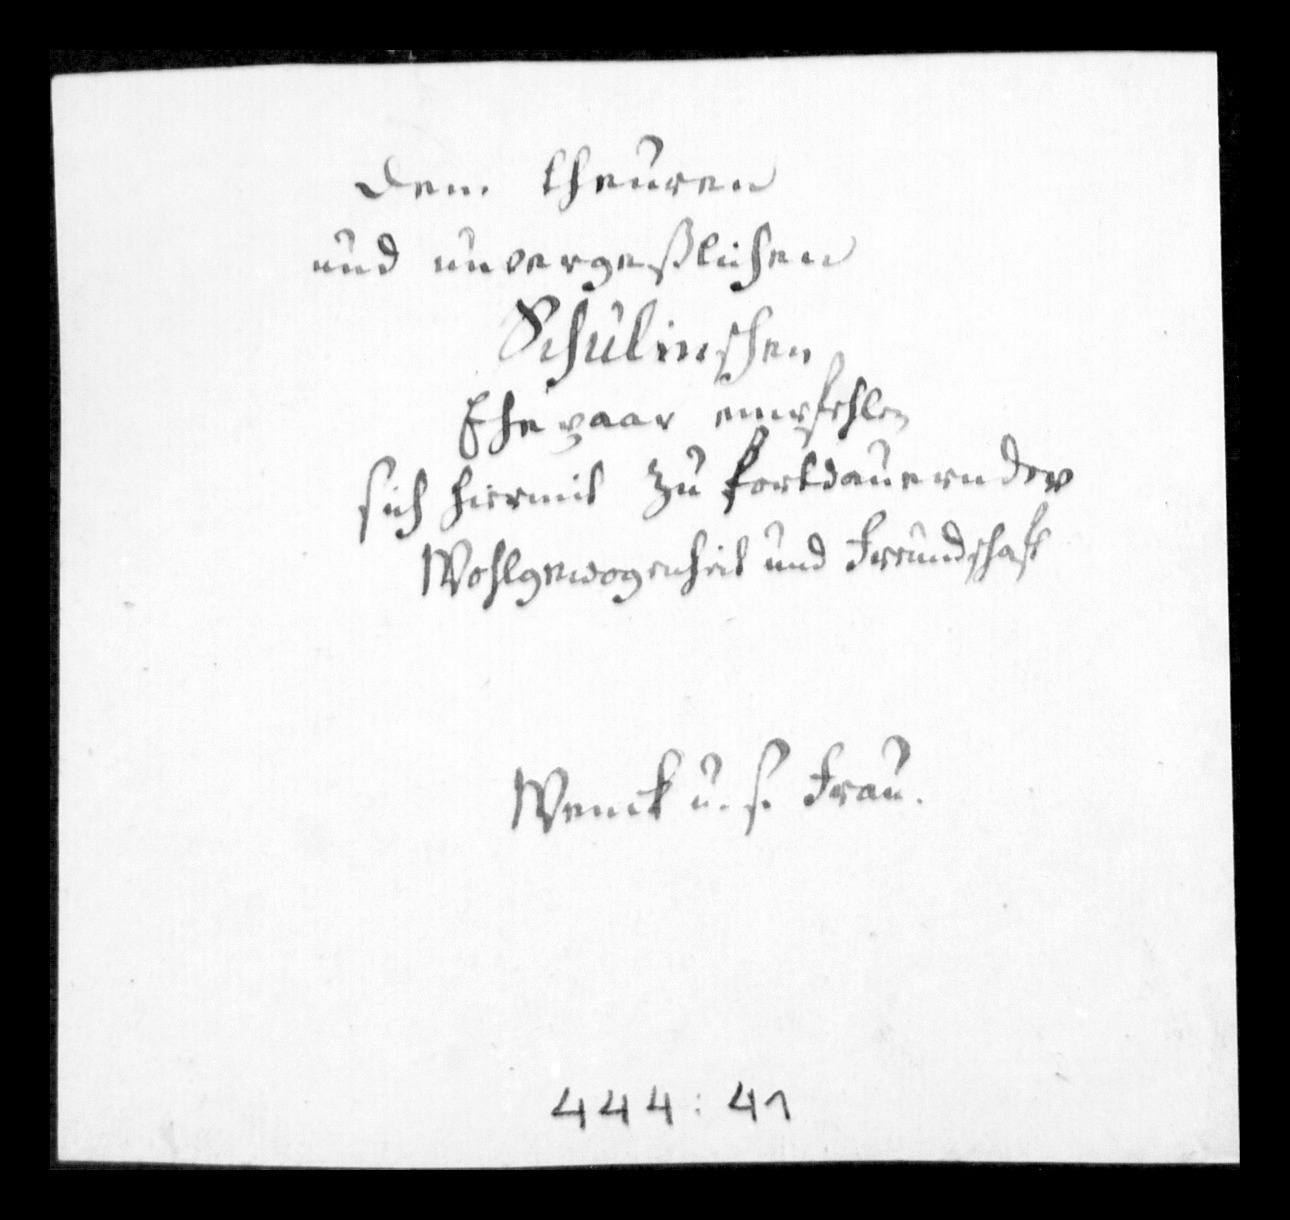 Dem theuren
und unvergeßlichen
Schulinschen
Ehepaar empfehlen
sich hiermit zu fortdauernder
Wohlgewogenheit und Freundschaft
Wenck u. s. Frau.
444:41